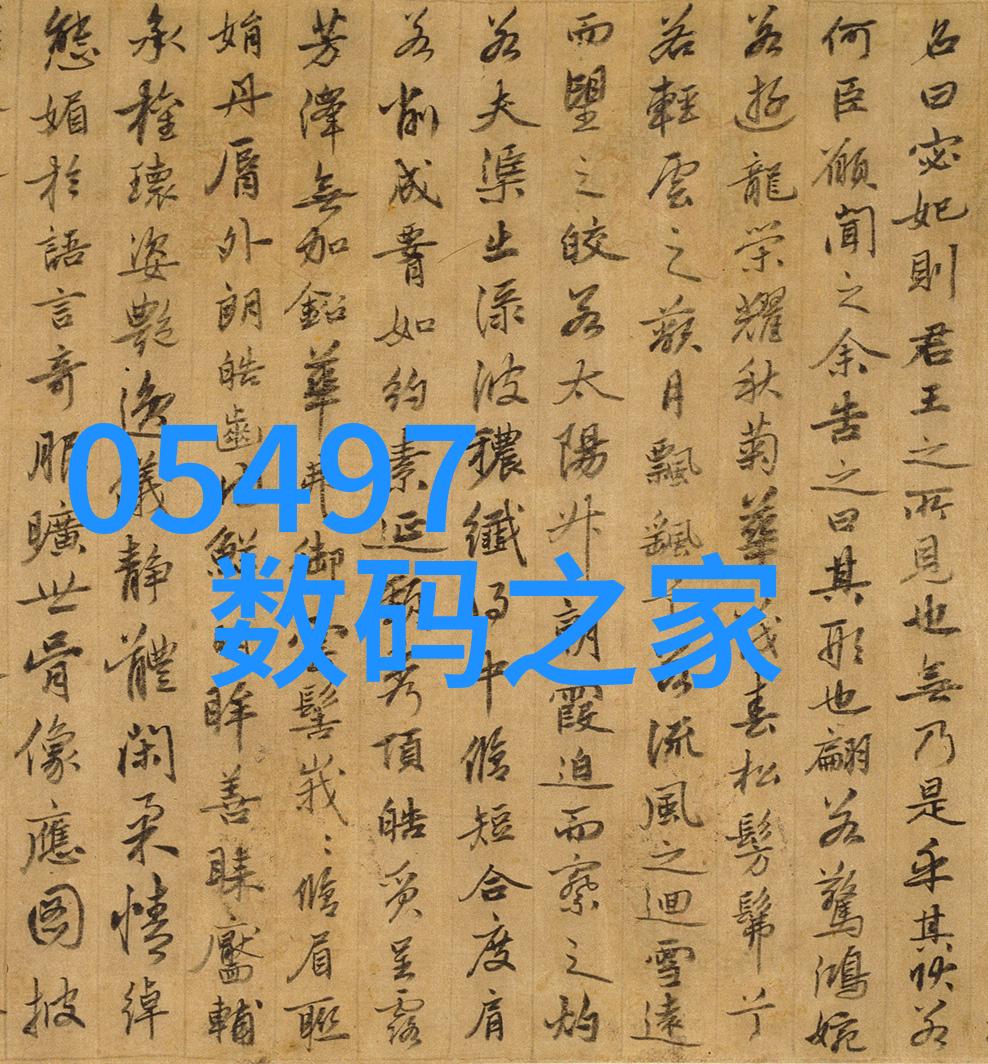 名曰宓妃則君王之所見也無乃是乎其狀若
何臣願聞之余告之曰其形也翩若驚鴻婉
若遊龍榮耀秋菊華茂春松髣髴兮
若輕雲之蔽月飄飖兮若流風之迴雪遠
而望之皎若太陽升朝霞迫而察之灼
若夫渠出淥波穠纖得中脩短合度肩
若削成腰如約素延頸秀項皓質呈露
芳澤無加鉛華弗御雲髻峩〻脩眉聯
娟丹脣外朗皓齒鮮眸善睞靨輔
承權瓌姿艷逸儀靜體閑柔情綽
態媚於語言奇服曠世骨像應圖披
05497
数码之家